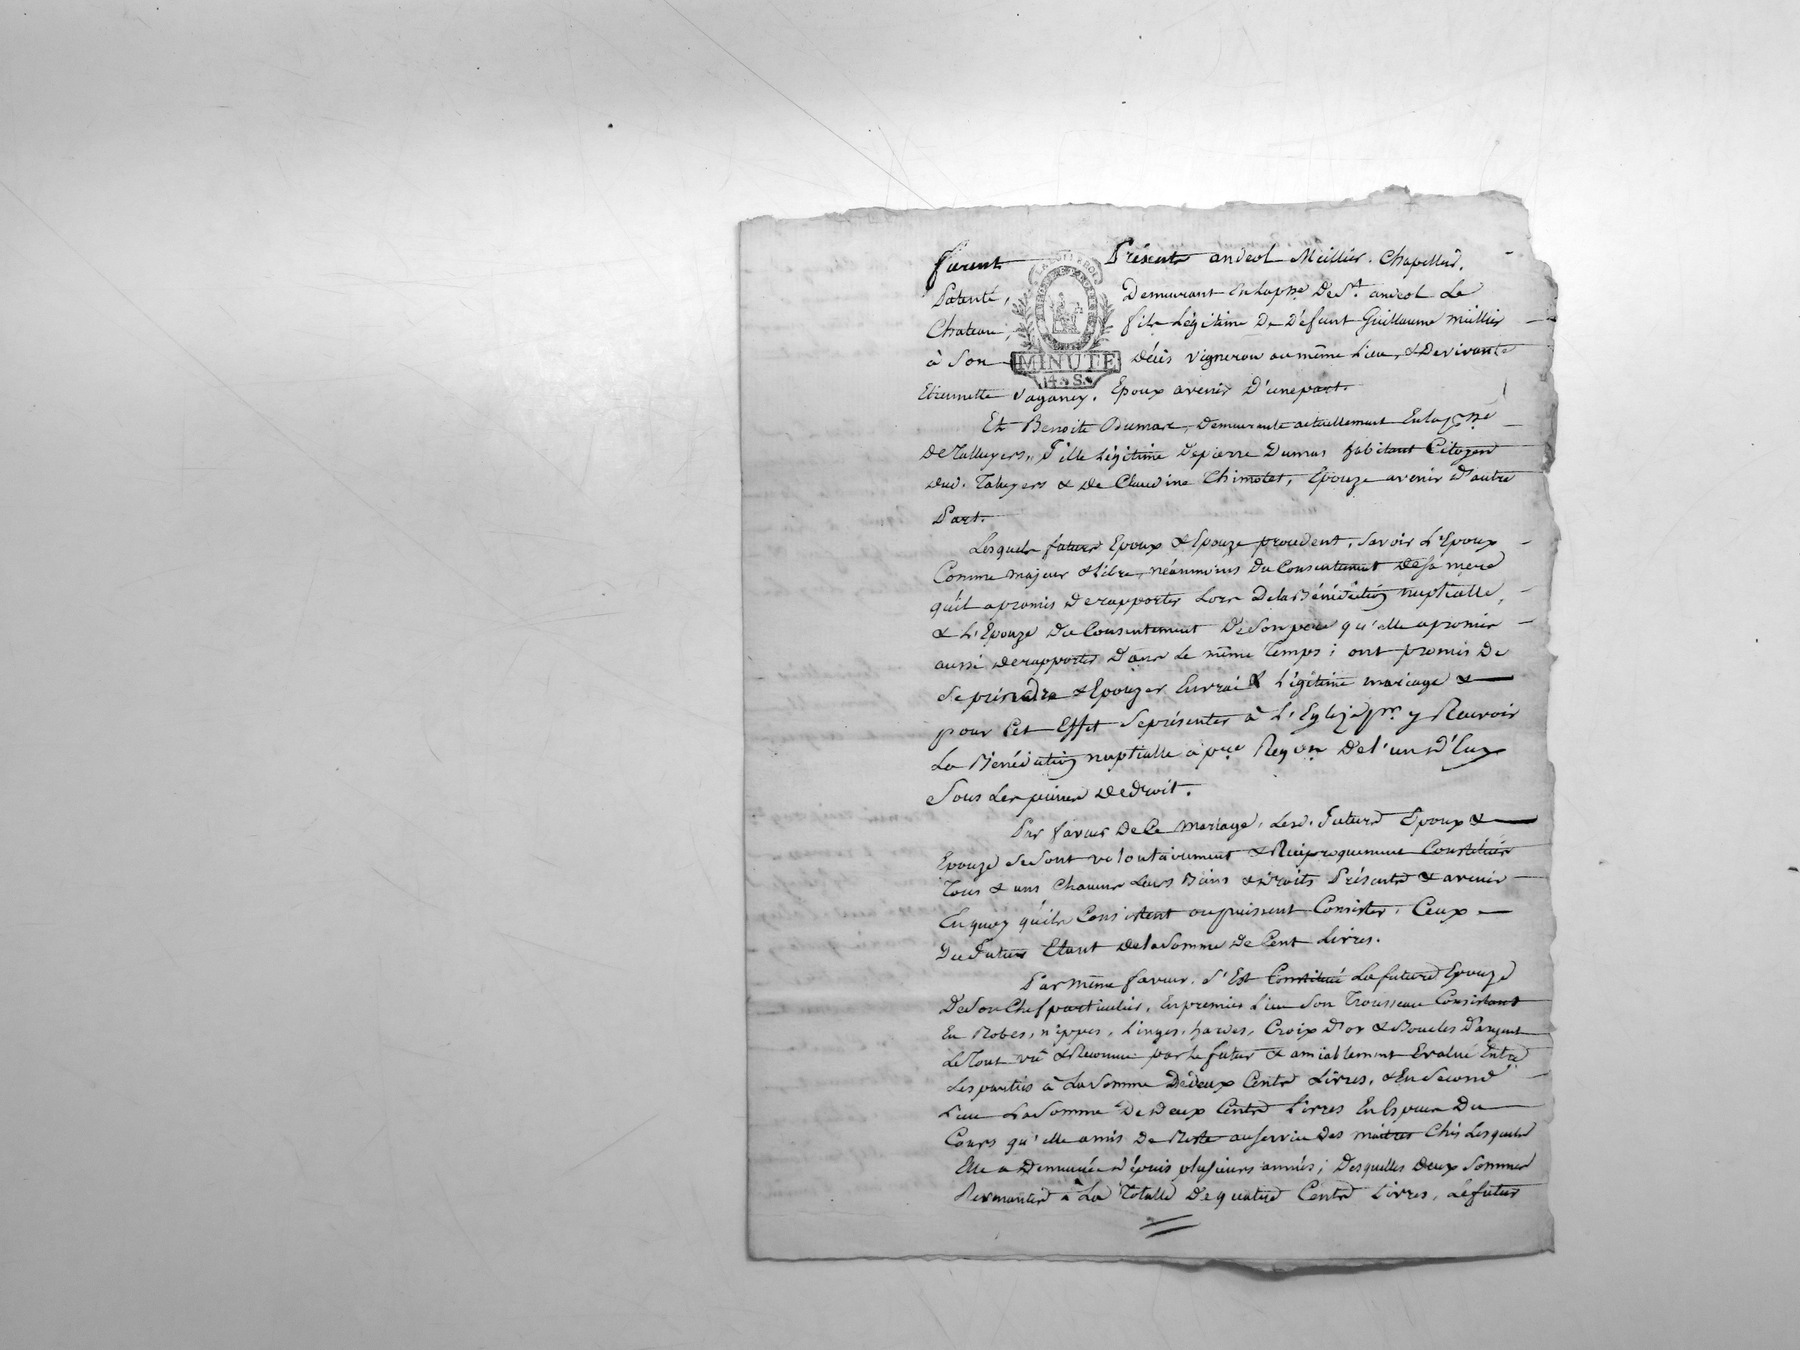 furent Présents andeol Meillier. Chapellier.
Patenté, Demeurant En lapsse De St. andeol Le
Chateau, fils Légitime De Défunt Guillaume Meillier
à Son Décès vigneron au même Lieu, & De vivante
Etiennette Dagancy. Epoux avenir D'une part.
LA LOI LE ROI
MINUTE
4 S.
Et Benoite Dumas, Demeurante actuellement En lapsse
De Talluyers, Fille Légitime De pierre Dumas habitant Citoyen
dud. Taluyers & De Claudine Chimotet, Epouze avenir D'autre
Part.
Lesquels futurs Epoux & Epouze procedent, Savoir L'Epoux
Comme majeur & libre, néanmoins Du Consentement De Sa mere
qu'il a promis De rapporter Lors De la Bénédiction nuptialle,
& L'Epouze Du Consentement De Son pere qu'elle a promis
aussi De rapporter Dans Le même Temps; ont promis De
Se prendre & Epouzer En vrai & Légitime mariage &
pour Cet Effet Se présenter à L'Eglize pr. y Recevoir
La Bénédiction nuptialle a pre. Reqon De l'un D'Eux
Sous Les peines De droit.
Par faveur De Ce Mariage, Lesd. Futurs Epoux &
Epouze Se Sont volontairement & Réciproquement Constitués
Tous & uns Chacuns Leurs Biens & Droits Présents & avenir
En quoy qu'ils Consistent ou puissent Consister, Ceux
Du Futur Etant De la Somme De Cent Livres.
Par même faveur, S'Est Constitué La future Epouze
De Son Chef particulier, En premier Lieu Son Trousseau Consistant
En Robes, nippes, Linges, hardes, Croix D'or & Boucles D'argent
Le Tout vû & Reconnu par Le futur & amiablement Evalué Entre
Les parties à La Somme De deux Cents Livres, & En Second
Lieu La Somme De Deux Cents Livres En Espece Du
Cours qu'elle a mis De Reste au Service Des maitres Chés Lesquels
Elle a Demeurée Dépuis plusieurs années; Desquelles Deux Sommes
Revenantes à La Totalle De quatre Cents Livres, Le futur